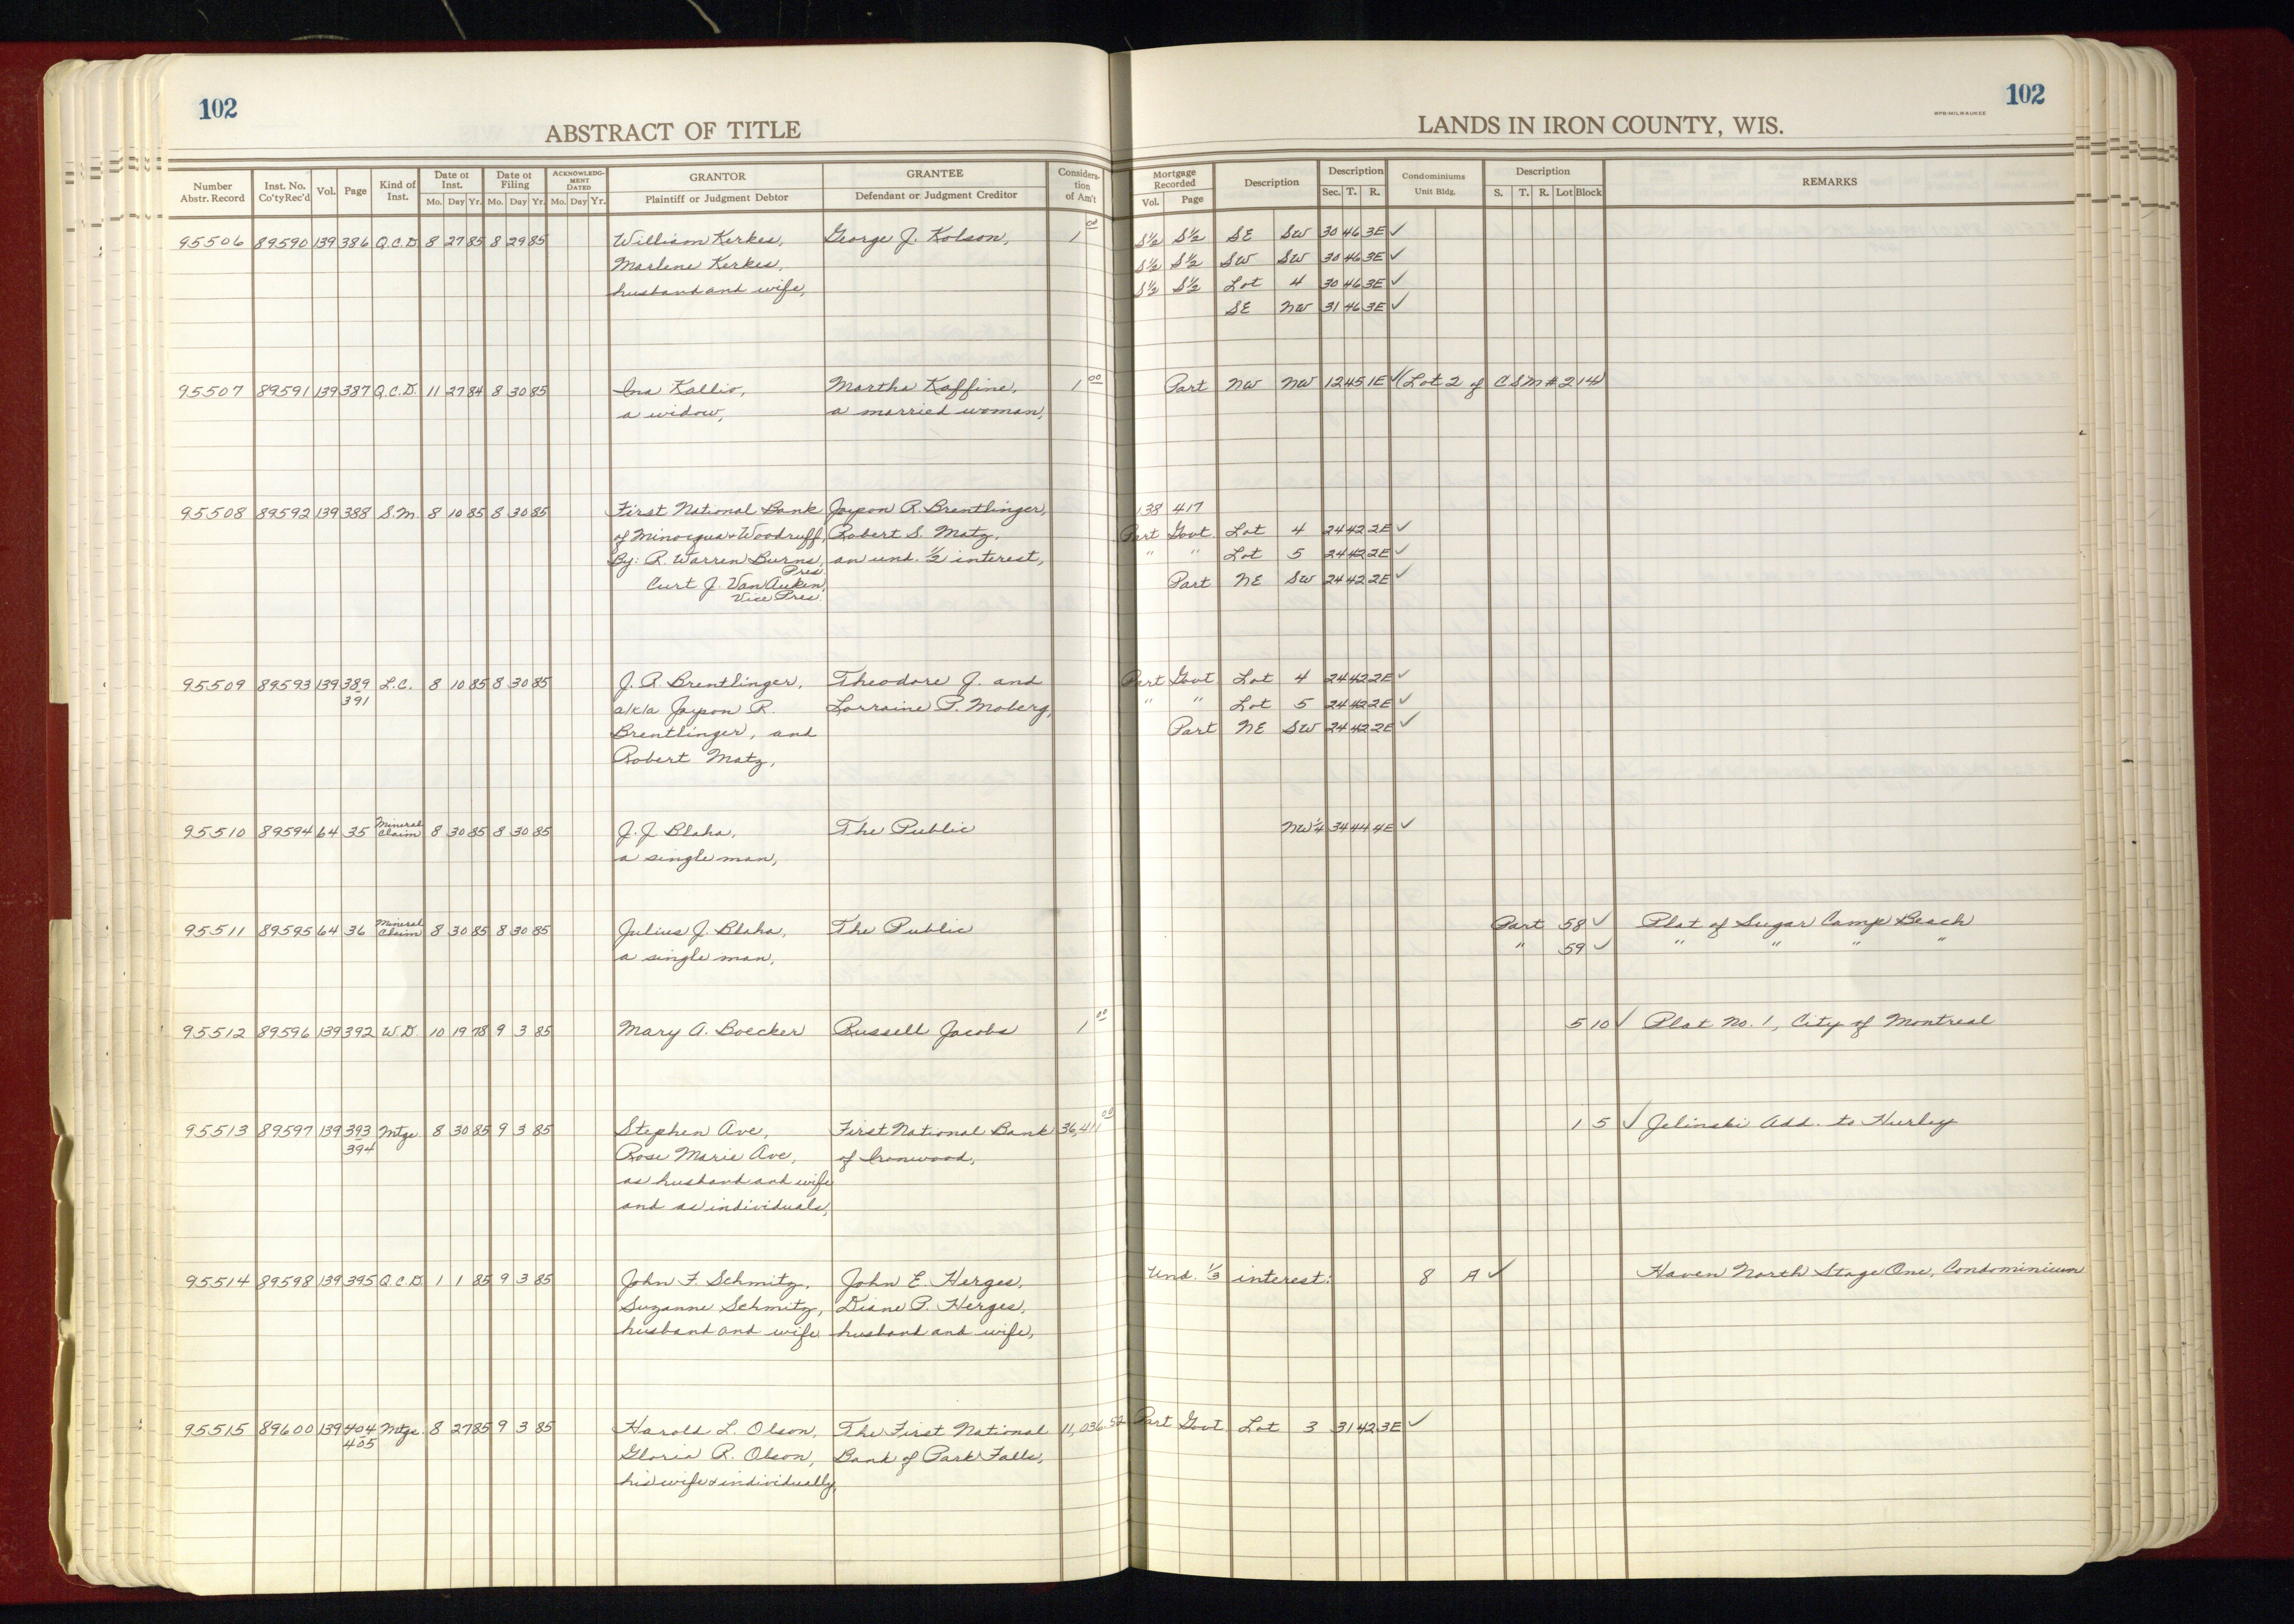 102
ABSTRACT OF TITLE
LANDS IN IRON COUNTY, WIS.
WPB-MILWAUKEE
102
Number Abstr. Record | Inst. No. Co'ty Rec'd | Vol. | Page | Kind of Inst. | Date of Inst. Mo. Day Yr. | Date of Filing Mo. Day Yr. | ACKNOWLEDG-MENT DATED Mo. Day Yr. | GRANTOR Plaintiff or Judgment Debtor | GRANTEE Defendant or Judgment Creditor | Considera-tion of Am't | Mortgage Recorded Vol. Page | Description | Description Sec. T. R. | Condominiums Unit Bldg. | Description S. T. R. Lot Block | REMARKS
95506 89590 139 386 Q.C.D. 8 27 85 8 29 85 William Kerkes, George J. Kolson, 1 00 S½ S½ SE SW 30 46 3E ✓
Marlene Kerkes, S½ S½ SW SW 30 46 3E ✓
husband and wife, S½ S½ Lot 4 30 46 3E ✓
SE NW 31 46 3E ✓
95507 89591 139 387 Q.C.D. 11 27 84 8 30 85 Ina Kallio, Martha Kaffine, 1 00 Part NW NW 12 45 1E ✓ (Lot 2 of CSM # 214)
a widow, a married woman,
95508 89592 139 388 S.M. 8 10 85 8 30 85 First National Bank Jayson R. Brentlinger, 138 417
of Minocqua & Woodruff, Robert S. Matz, Part Govt. Lot 4 24 42 2E ✓
By: R. Warren Burns, an und. ½ interest, " " Lot 5 24 42 2E ✓
Pres.
Curt J. Van Auken, Part NE SW 24 42 2E ✓
Vice Pres.
95509 89593 139 389 L.C. 8 10 85 8 30 85 J. R. Brentlinger, Theodore J. and Part Govt Lot 4 24 42 2E ✓
391 a/k/a Jayson R. Lorraine P. Moberg, " " Lot 5 24 42 2E ✓
Brentlinger, and Part NE SW 24 42 2E ✓
Robert Matz,
95510 89594 64 35 Mineral Claim 8 30 85 8 30 85 J. J. Blaha, The Public NW¼ 34 44 4E ✓
a single man,
95511 89595 64 36 Mineral Claim 8 30 85 8 30 85 Julius J. Blaha, The Public Part 58 ✓ Plat of Sugar Camp Beach
a single man, " 59 ✓ " " " "
95512 89596 139 392 W.D. 10 19 78 9 3 85 Mary A. Boecker Russell Jacobs 1 00 5 10 ✓ Plat No. 1, City of Montreal
95513 89597 139 393 Mtge 8 30 85 9 3 85 Stephen Ave, First National Bank 36,411 00 1 5 ✓ Jelinski Add. to Hurley
394 Rose Marie Ave, of Ironwood,
as husband and wife
and as individuals,
95514 89598 139 395 Q.C.D. 1 1 85 9 3 85 John F. Schmitz, John E. Herges, Und. ⅓ interest: 8 A ✓ Haven North Stage One, Condominium
Suzanne Schmitz, Diane P. Herges,
husband and wife husband and wife,
95515 89600 139 404 Mtge. 8 27 85 9 3 85 Harold L. Olson, The First National 11,036 52 Part Govt. Lot 3 31 42 3E ✓
405 Gloria R. Olson, Bank of Park Falls,
his wife & individually,